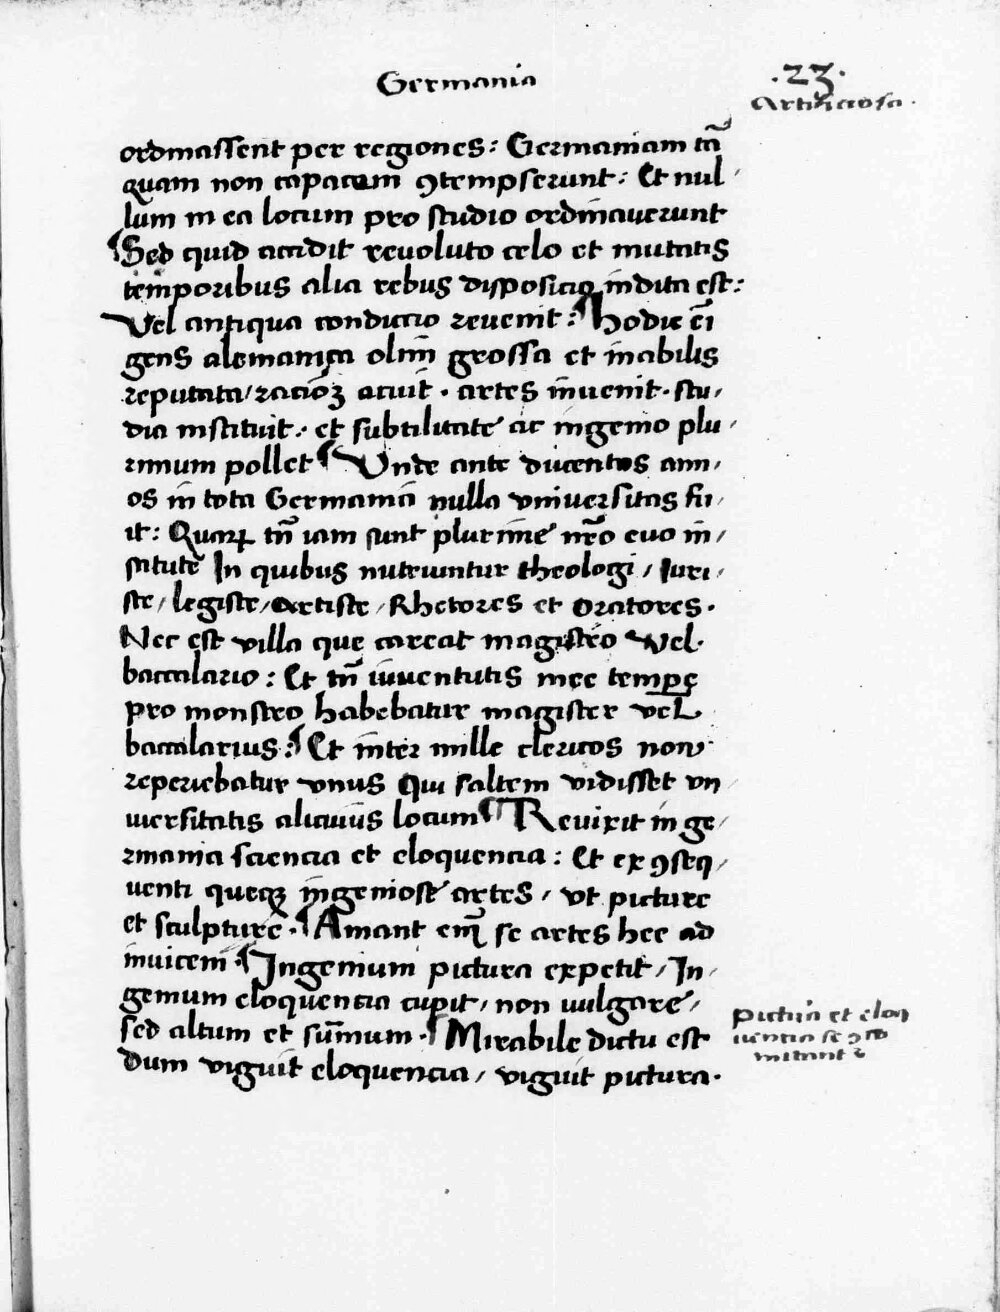 Germania
.23.
Artificiosa.
ordinassent per regiones: Germaniam tā
quam non capacem ꝯtempserunt: Et nul-
lum in ea locum pro studio ordinauerunt
¶Sed quid accidit reuoluto celo et mutatis
temporibus alia rebus disposicio indita est:
Vel antiqua condicio reuenit: ¶Hodie eī
gens alemanica olim grossa et inabilis
reputata/ racōȝ acuit. artes inuenit. stu-
dia instituit. et subtilitate ac ingenio plu-
rimum pollet ¶Vnde ante ducentos ann-
os in tota Germania nulla vniuersitas fu-
it: Quaꝝ tn̄ iam sunt plurime nr̄o euo in-
stitute In quibus nutriuntur theologi/ Iuri-
ste/ legiste/ Artiste/ Rhetores et Oratores.
Nec est villa que careat magistro vel
baccalario: Et tn̄ iuuentutis mee tempe
pro monstro habebatur magister vel
baccalarius: ¶Et inter mille clericos non
reperiebatur vnus Qui saltem vidisset vn
iuersitatis alicuius locum ¶Reuixit in ge-
rmania sciencia et eloquencia: Et ex ꝯseq-
uenti queqȝ ingeniose artes/ vt picture
et sculpture. ¶Amant em̄ se artes hee ad
inuicem ¶Ingenium pictura expetit/ In-
genium eloquencia cupit/ non vulgare/
sed altum et sum̄um. ¶Mirabile dictu est
dum viguit eloquencia/ viguit pictura.
pictura et eloq
uentia se ꝯco
mitantr